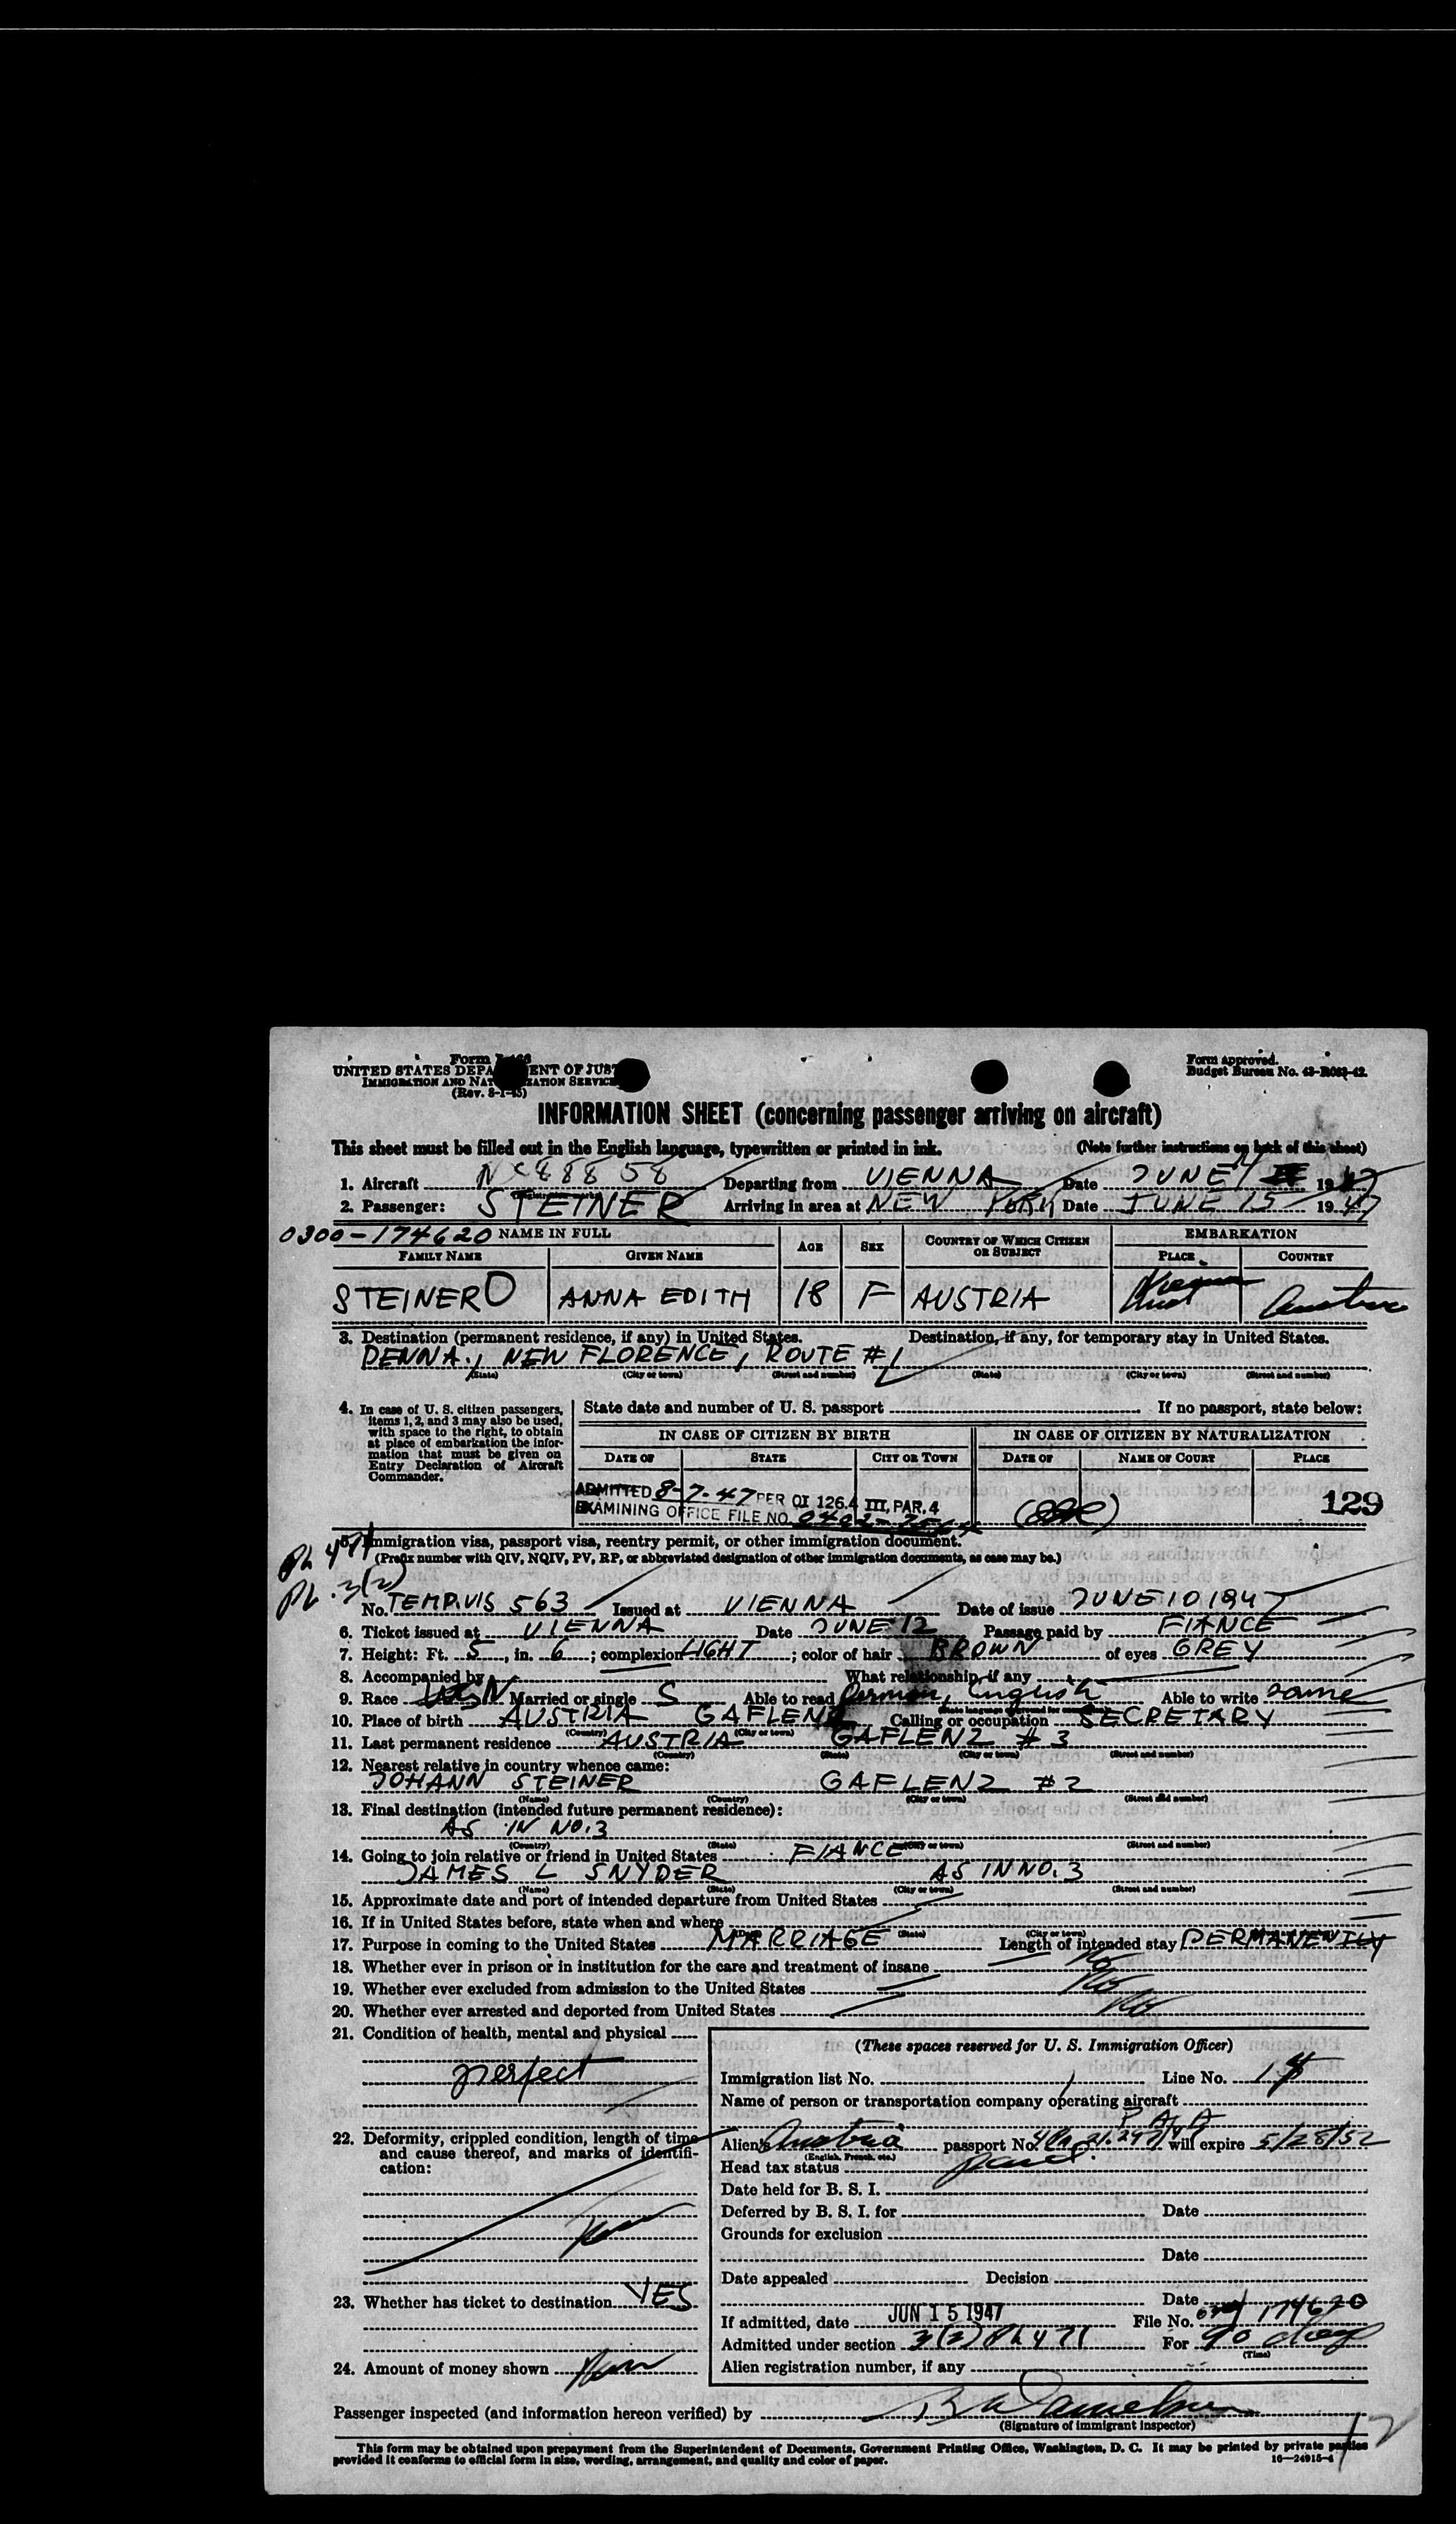 Form I-466
UNITED STATES DEPARTMENT OF JUSTICE
IMMIGRATION AND NATURALIZATION SERVICE
(Rev. 8-1-45)
Form approved.
Budget Bureau No. 43-R083-42.
INFORMATION SHEET (concerning passenger arriving on aircraft)
This sheet must be filled out in the English language, typewritten or printed in ink. (Note further instructions on back of this sheet)
1. Aircraft NC 888 58 Departing from VIENNA Date JUNE 14 1947
2. Passenger: STEINER Arriving in area at NEW YORK Date JUNE 15 1947
0300-174620 NAME IN FULL
FAMILY NAME GIVEN NAME AGE SEX COUNTRY OF WHICH CITIZEN OR SUBJECT EMBARKATION PLACE COUNTRY
STEINER ANNA EDITH 18 F AUSTRIA Austria
3. Destination (permanent residence, if any) in United States. Destination, if any, for temporary stay in United States.
PENNA., NEW FLORENCE, ROUTE #1
(State) (City or town) (Street and number) (State) (City or town) (Street and number)
4. In case of U. S. citizen passengers, items 1, 2, and 3 may also be used, with space to the right, to obtain at place of embarkation the information that must be given on Entry Declaration of Aircraft Commander.
State date and number of U. S. passport If no passport, state below:
IN CASE OF CITIZEN BY BIRTH IN CASE OF CITIZEN BY NATURALIZATION
DATE OF STATE CITY OR TOWN DATE OF NAME OF COURT PLACE
ADMITTED 8-7-47 PER OI 126.4 III, PAR. 4
EXAMINING OFFICE FILE NO.
129
5. Immigration visa, passport visa, reentry permit, or other immigration document.
(Prefix number with QIV, NQIV, PV, RP, or abbreviated designation of other immigration documents, as case may be.)
PL 471
PL 3(2)
No. TEMP. VIS 563 Issued at VIENNA Date of issue JUNE 10 1947
6. Ticket issued at VIENNA Date JUNE 12 Passage paid by FIANCE
7. Height: Ft. 5, in. 6; complexion LIGHT; color of hair BROWN of eyes GREY
8. Accompanied by What relationship, if any
9. Race Married or single S Able to read German, English Able to write same
10. Place of birth AUSTRIA GAFLENZ Calling or occupation SECRETARY
(Country) (City or town)
11. Last permanent residence AUSTRIA GAFLENZ # 3
(Country) (State) (City or town) (Street and number)
12. Nearest relative in country whence came:
JOHANN STEINER GAFLENZ # 2
(Name) (Country) (City or town) (Street and number)
13. Final destination (intended future permanent residence):
AS IN NO. 3
(Country) (State) (City or town) (Street and number)
14. Going to join relative or friend in United States FIANCE
JAMES L SNYDER AS IN NO. 3
(Name) (State) (City or town) (Street and number)
15. Approximate date and port of intended departure from United States
16. If in United States before, state when and where
(State) (City or town)
17. Purpose in coming to the United States MARRIAGE Length of intended stay PERMANENTLY
18. Whether ever in prison or in institution for the care and treatment of insane No
19. Whether ever excluded from admission to the United States No
20. Whether ever arrested and deported from United States No
21. Condition of health, mental and physical
perfect
22. Deformity, crippled condition, length of time and cause thereof, and marks of identification:
23. Whether has ticket to destination YES
24. Amount of money shown
(These spaces reserved for U. S. Immigration Officer)
Immigration list No. 1 Line No.
Name of person or transportation company operating aircraft
P. A. A
Alien's Austria passport No. will expire 5/28/52
(English, French, etc.)
Head tax status paid.
Date held for B. S. I.
Deferred by B. S. I. for Date
Grounds for exclusion
Date
Date appealed Decision
Date
If admitted, date JUN 15 1947 File No. 174620
Admitted under section 3(2) PL 471 For 90 days
(Time)
Alien registration number, if any
Passenger inspected (and information hereon verified) by
(Signature of immigrant inspector)
This form may be obtained upon prepayment from the Superintendent of Documents, Government Printing Office, Washington, D. C. It may be printed by private parties
provided it conforms to official form in size, wording, arrangement, and quality and color of paper. 16—24915-4